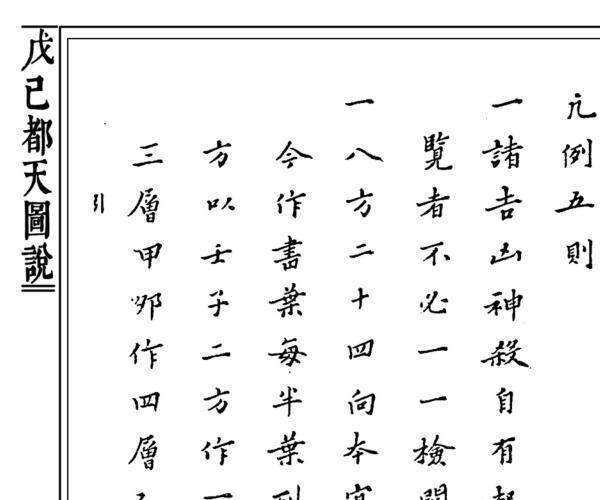 凡例五則
一諸吉凶神殺自有
覽者不必一一檢
一八方二十四向本
今作書葉每半葉
方以壬子二方作
三層甲卯作四層
引
戊己都天圖說